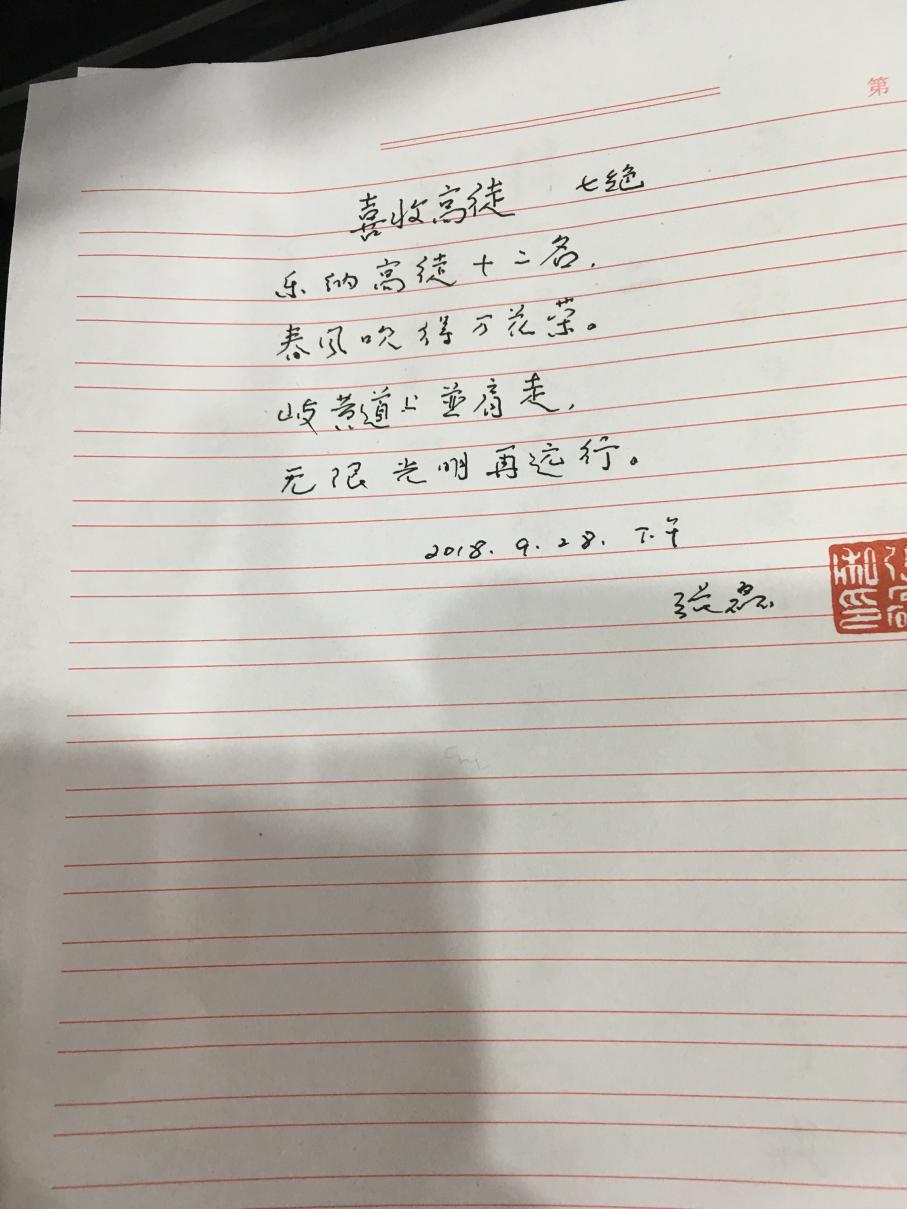 第
喜收高徒 七绝
乐纳高徒十二名，
春风吹得万花荣。
岐黄道上並肩走，
无限光明再远行。
2018.9.28.下午
张磊